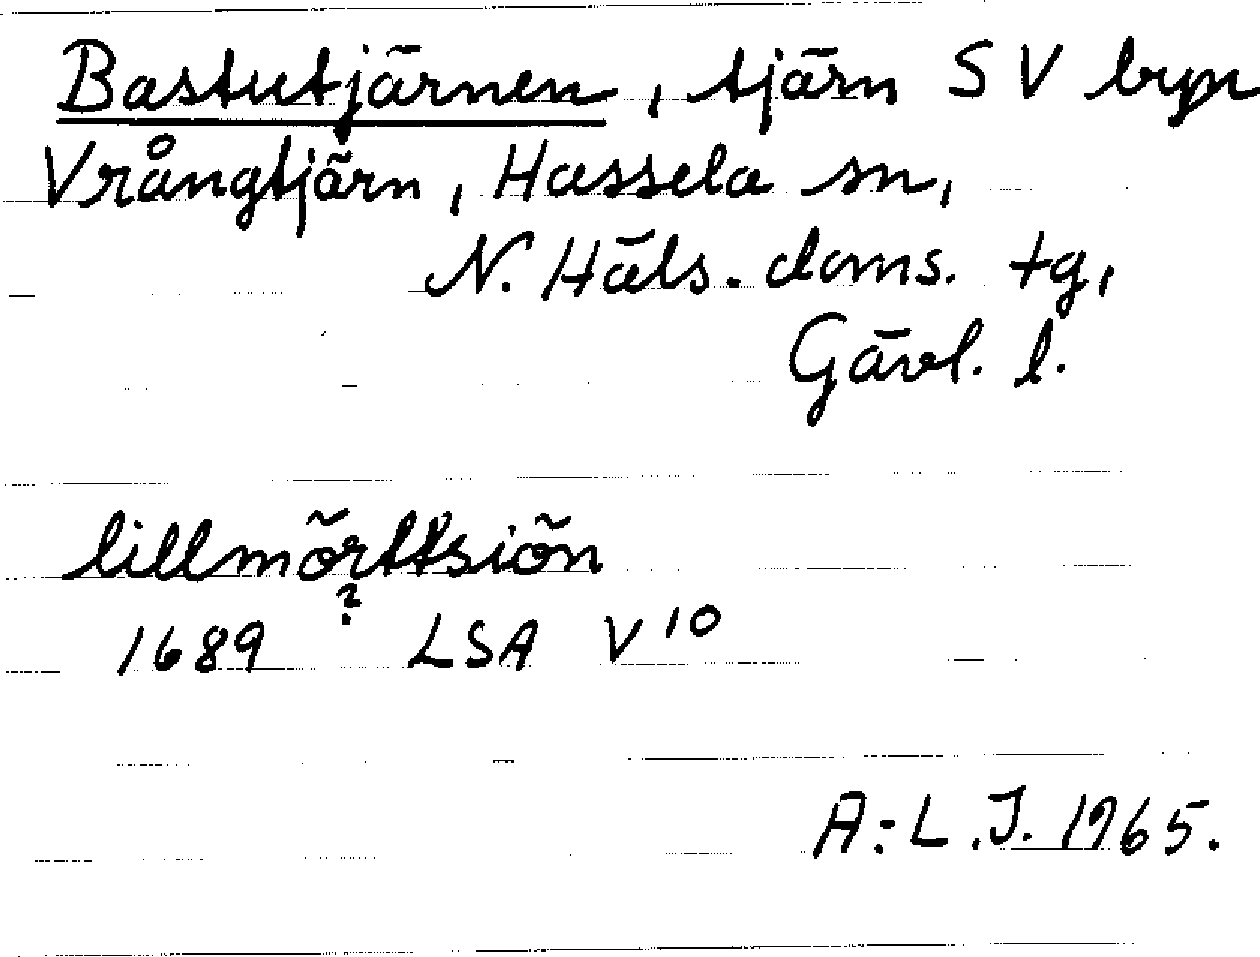 Bastutjärnen, tjärn SV byn
Vrångtjärn, Hassela sn,
N. Häls. doms. tg,
Gävl. l.
lillmörttsiön
?
1689 LSA V10
A:L.J. 1965.